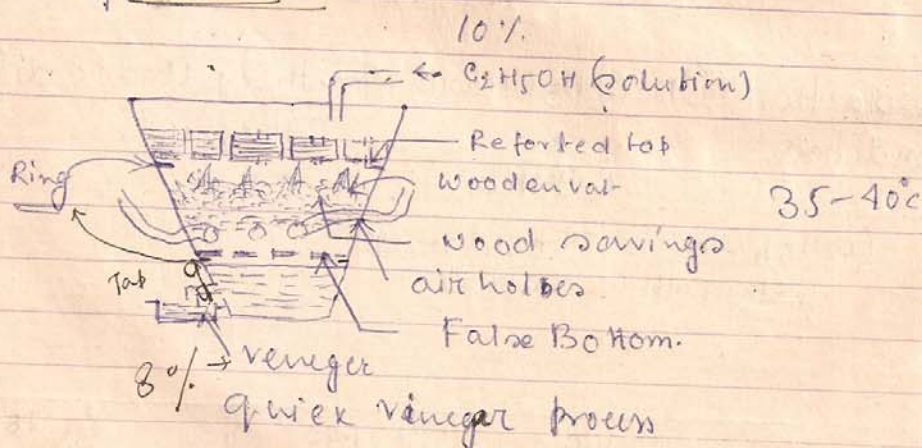 10%
C2H5OH (solution)
Reforted top
Ring
Woodenvat
35-40°c
wood savings
Tap
air holoes
False Bottom.
8% → veneger
quick vinegar process